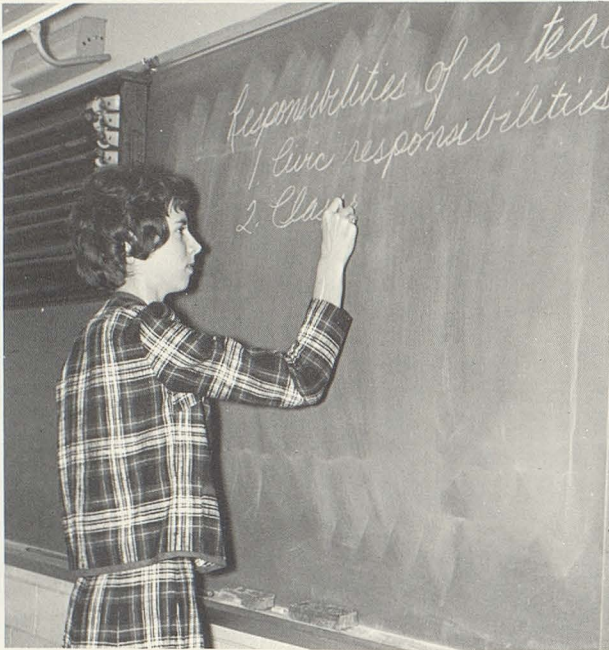 Responsibilities of a tea
1. Civic responsibilities
2. Class